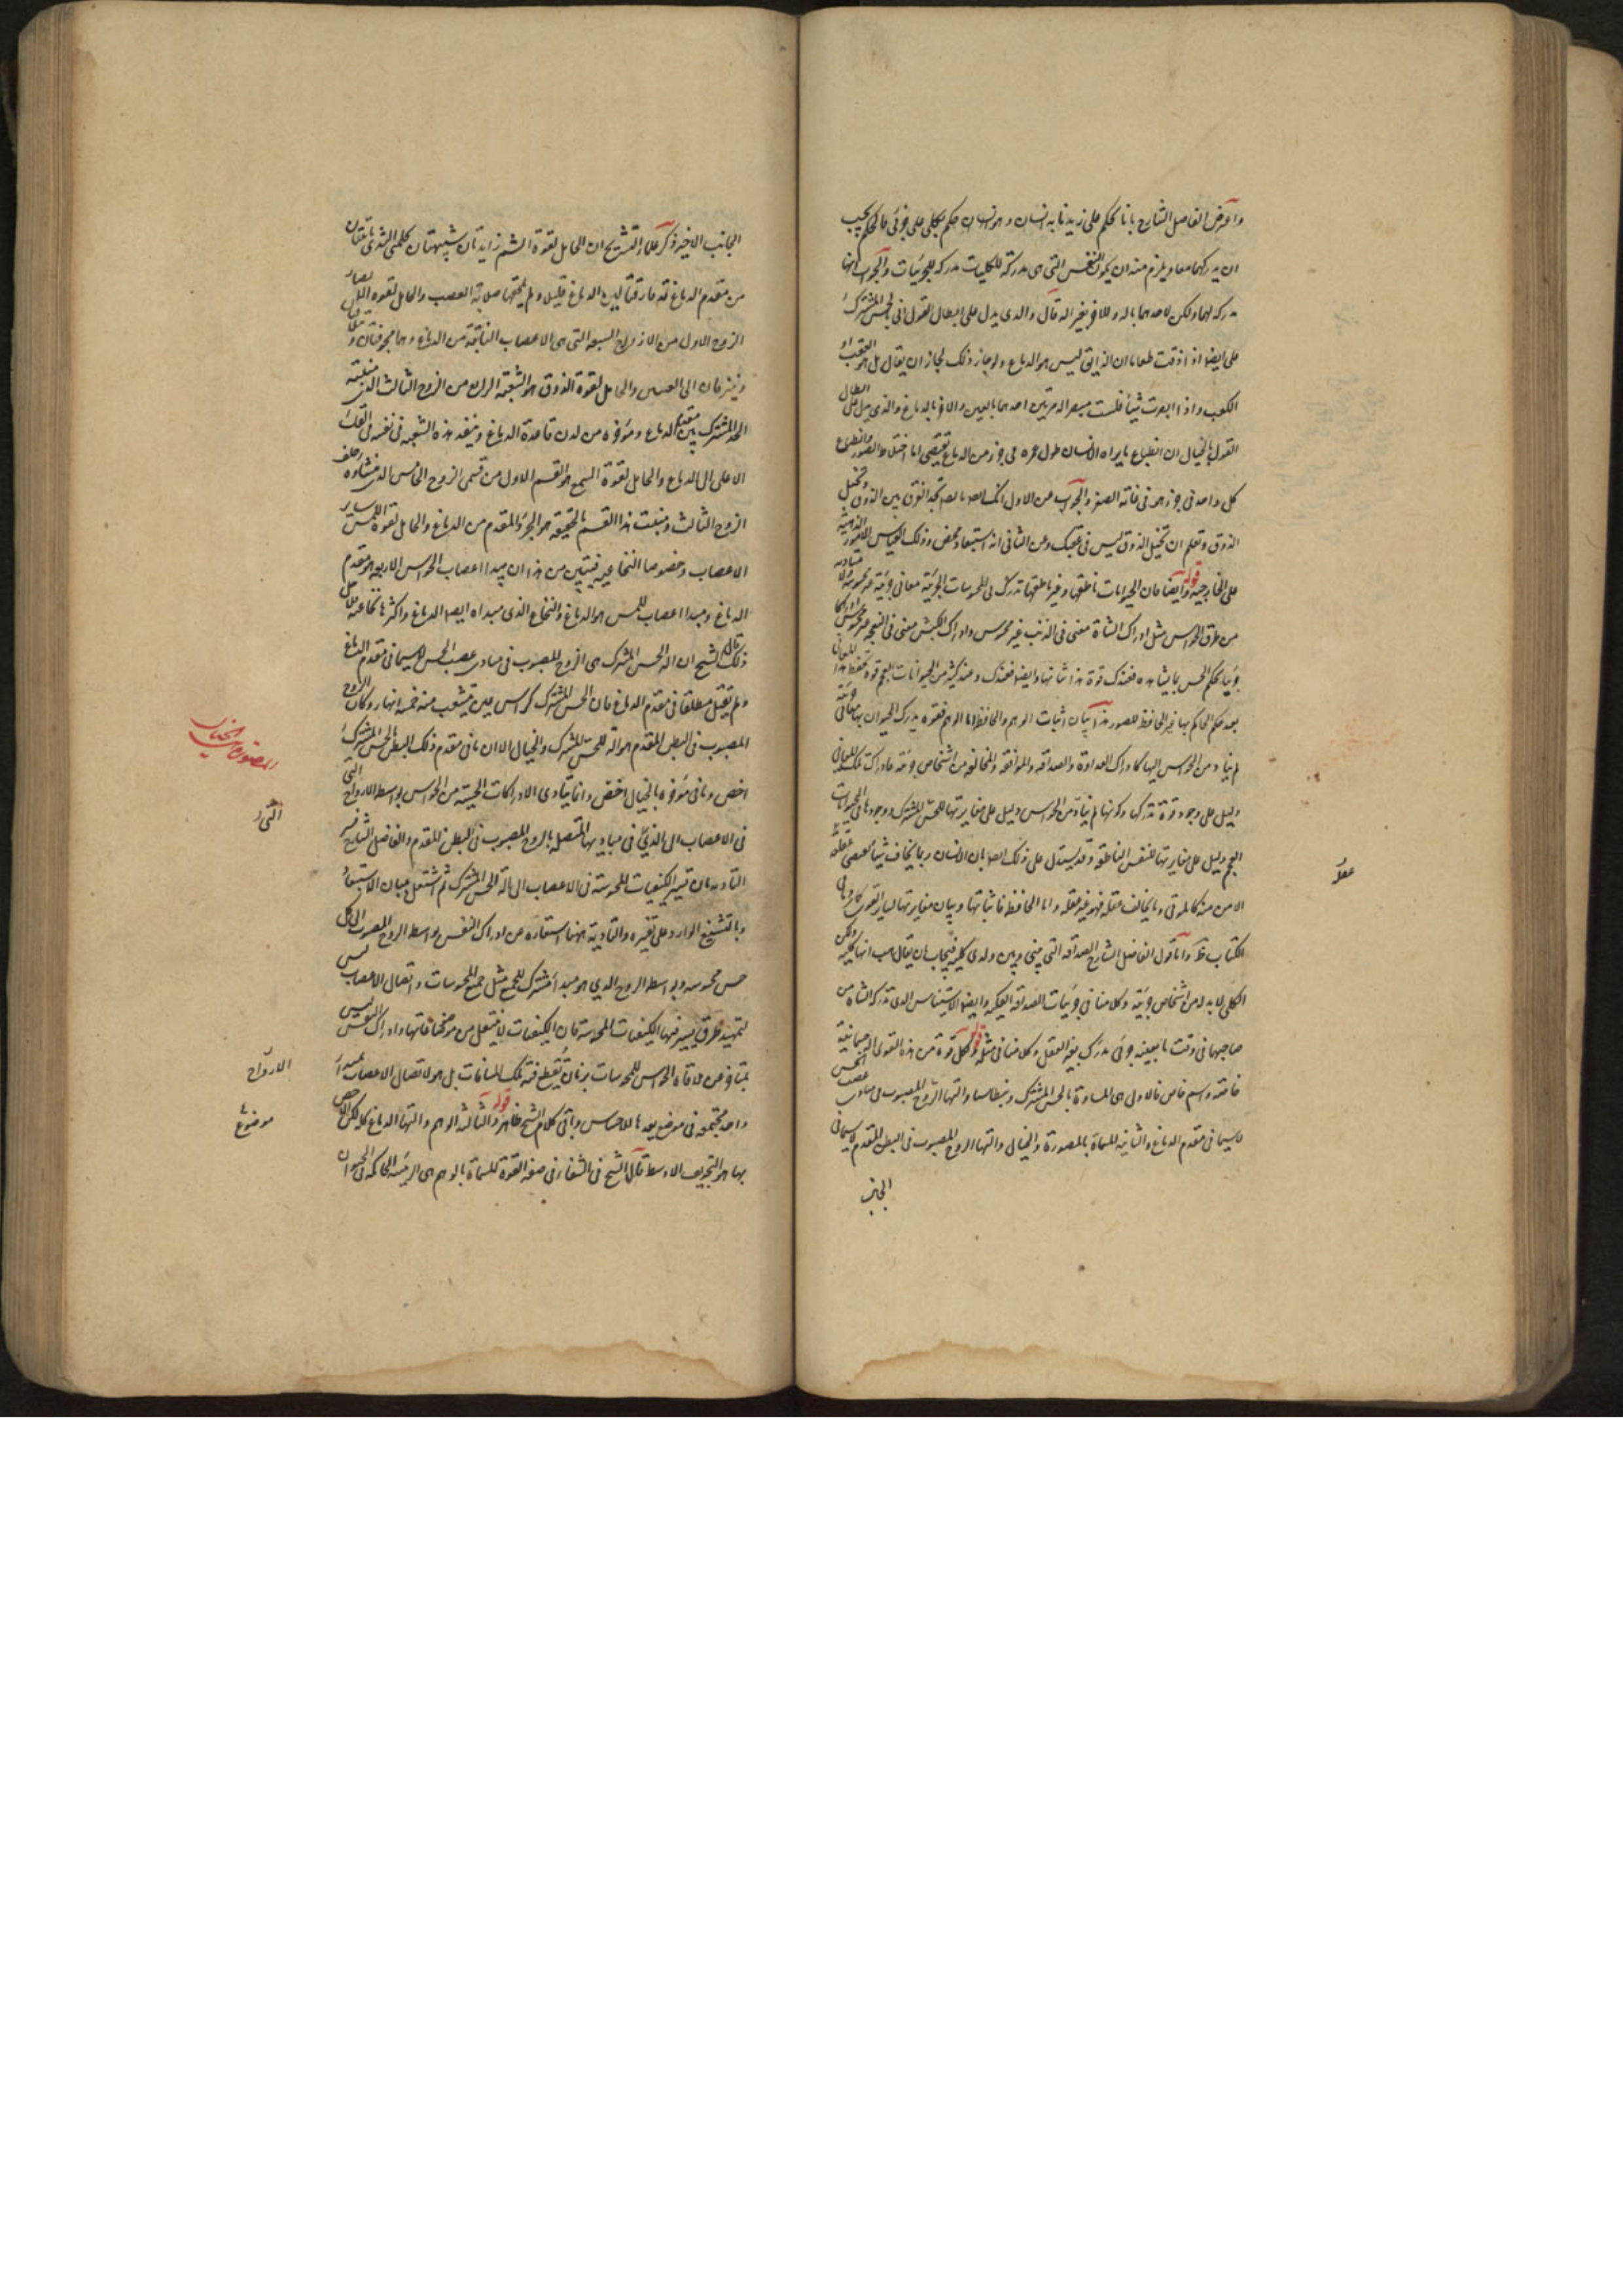 واعترض الفاضل الشارح بانا نحكم على زيد بانه انسان وهو انسان حكم بكلى على جزئى والحكم يجب
ان يدركهما معا ويلزم منه ان يكون النفس التى هى مدركة للكليات مدركة للجزئيات والجواب انها
مدركة لهما ولكن لاحدهما بالة وللاخر بغير الة قال والذى يدل على ابطال القول فى الحس المشترك
على ايضا اذا ذقت طعاما ان الذايق ليس هو الدماغ ولو جاز ذلك لجاز ان يقال بل هو العقب او
الكعب واذا ابصرت شيئا فلست مبصرا له مرتين احدهما بالعين والاخر بالدماغ والذى يدل على ابطال
القول بالخيال ان انطباع ما يراه الانسان طول عمره فى جزء من الدماغ يقتضى اما اختلاط الصور وانطباع
كل واحد فى جزء هو فى غاية الصغر والجواب عن الاول انك ايضا تجد الفرق بين الذوق وتخيل
الذوق وتعلم ان تخيل الذوق ليس فى عقبك وعن الثانى انه استبعاد محض وذلك لقياس الامور الذهنية
على الخارجية قوله وايضا فان الحيوانات ناطقها وغير ناطقها تدرك فى المحسوسات الجزئية معانى جزئية غير محسوسة ولا متأدية
من طرق الحواس مثل ادراك الشاة معنى فى الذئب غير محسوس وادراك الكبش معنى فى النعجة غير محسوس ادراكا
جزئيا يحكم الحس بما يشاهده فعندك قوة هذا شانها وايضا فعندك وعند كثير من الحيوانات العجم قوة تحفظ هذه المعانى
بعد حكم الحاكم بها غير الحافظ للصور هذا بيان اثبات الوهم والحافظة اما الوهم فقوة يدرك الحيوان بها معانى جزئية
لم يتاد من الحواس اليها كادراك العداوة والصداقة والموافقة والمخالفة من اشخاص جزئية فادراك تلك المعانى
دليل على وجود قوة تدركها وكونها لم يتاد من الحواس دليل على مغايرتها للحس المشترك ووجودها فى الحيوانات
العجم دليل على مغايرتها للنفس الناطقة وقد يستدل على ذلك ايضا بان الانسان ربما يخاف شيئا يقتضى عقله
الامن منه كالموتى وما يخالف عقله فهو غير عقله واما الحافظة فاثباتها وبيان مغايرتها لساير القوى كما مر وما فى
الكتاب ظ واما قول الفاضل الشارح الصداقة التى بينى وبين ولدى كلية فيجاب بان يقال هب انها كلية ولكن
الكلى لابد له من اشخاص جزئية وكلامنا فى جزئيات الصداقة الكلية وايضا الاستيناس الذى تدركه الشاة من
صاحبها فى وقت ما بعينه جزئى مدرك بغير العقل وكلامنا فى مثله قوله ولكل قوة من هذه القوى الة جسمانية
خاصة واسم خاص فالاولى هى المسماة بالحس المشترك وبنطاسيا والتها الروح المصبوب فى مبادى عصب الحس
لاسيما فى مقدم الدماغ والثانية المسماة بالمصورة والخيال والتها الروح المصبوب فى البطن المقدم لاسيما فى
الجانب
عقله
الجانب الاخير ذكر علماء التشريح ان الحامل لقوة الشم زايدتان شبيهتان بحلمتى الثدى نابتتان
من مقدم الدماغ قد فارقتا لين الدماغ قليلا ولم يلحقهما صلابة العصب والحامل لقوة الابصار
الزوج الاول من الازواج السبعة التى هى الاعصاب النابتة من الدماغ وهما مجوفتان
ويفترقان الى العينين والحامل لقوة الذوق هو الشعبة الرابعة من الزوج الثالث الذى منبته
الحد المشترك بين مقدم الدماغ ومؤخره من لدن قاعدة الدماغ وينفذ هذه الشعبة فى ثقبة فى الفك
الاعلى الى اللسان والحامل لقوة السمع هو القسم الاول من قسمى الزوج الخامس الذى منشاؤه خلف
الزوج الثالث ومنبت هذا القسم بالحقيقة هو الجزء المقدم من الدماغ والحامل لقوة اللمس ساير
الاعصاب وخصوصا النخاعية فتبين من هذا ان مبدا اعصاب الحواس الاربعة هو مقدم
الدماغ ومبدا اعصاب اللمس هو الدماغ والنخاع الذى مبداه ايضا الدماغ واكثرها نخاعية فلاجل
ذلك قال الشيخ ان الة الحس المشترك هى الروح المصبوب فى مبادى عصب الحس لاسيما فى مقدم الدماغ
ولم يقل مطلقا فى مقدم الدماغ فان الحس المشترك كراس عين تشعب منه خمسة انهار وكان الروح
المصبوب فى البطن المقدم هو الة للحس المشترك والخيال الا ان ما فى مقدم ذلك البطن بالحس المشترك
اخص وما فى مؤخره بالخيال اخص وانما يتادى الادراكات الحسية من الحواس بواسطة الارواح التى
فى الاعصاب الى ما فى مباديها المتصلة بالروح المصبوب فى البطن المقدم والفاضل الشارح فسر
التادية بان تسير الكيفيات المحسوسة فى الاعصاب الى الة الحس المشترك ثم اشتغل ببيان الاستبعاد
وبالتشنيع الوارد على تفسيره والتادية ههنا استعارة عن ادراك النفس بواسطة الروح المصبوب الى كل
حس محسوسه وبواسطة الروح الذى هو مبدا مشترك للجميع مثل جميع المحسوسات واتصال الاعصاب ليس
لتمهيد طرق يسير فيها الكيفيات المحسوسة فان الكيفيات لا ينتقل من موضوعاتها وادراك النفس ليس
بمتاخر عن ملاقاة الحواس للمحسوسات بزمان يقطع فيه تلك المسافات بل هو لاتصال الاعصاب بمبدا
واحد مجتمعة فى موضع يعدها للاحساس وباقى كلام الشيخ ظاهر قوله والثالثة الوهم والتها الدماغ كله لكن الاخص
بها هو التجويف الاوسط قال الشيخ فى الشفا فى صفة القوة المسماة بالوهم هى الرئيسة الحاكمة فى الحيوان
المصورة والخيال
الارواح
موضوع